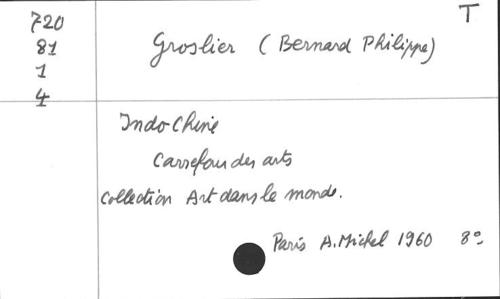 T
720
81
1
4
Groslier (Bernard Philippe)
Indo Chine
Carrefour des arts
Collection Art dans le monde.
Paris A. Michel 1960 8º